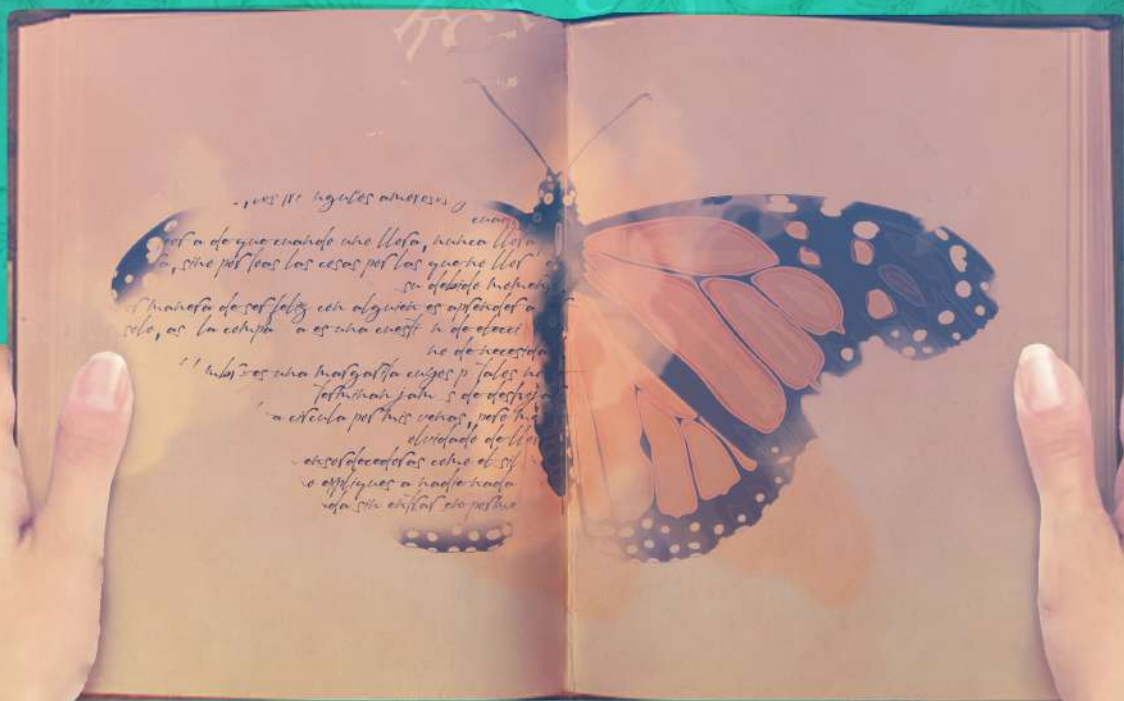 ngulos amorosos y
cuan
or a de que cuando uno llora, nunca llora
a, sino por toas las cosas por las que no llor
su debido momen
r manera de ser feliz con alguien es aprender a
solo, as la compa a es una cuesti n de elecci
no de necesida
mbr es una margarita cuyos p talos no
terminan jam s de deshoja
a circula por mis venas, pero me
olvidado de llor
ensordecedoras como el sil
o expliques a nadie nada
nda sin entrar en porme